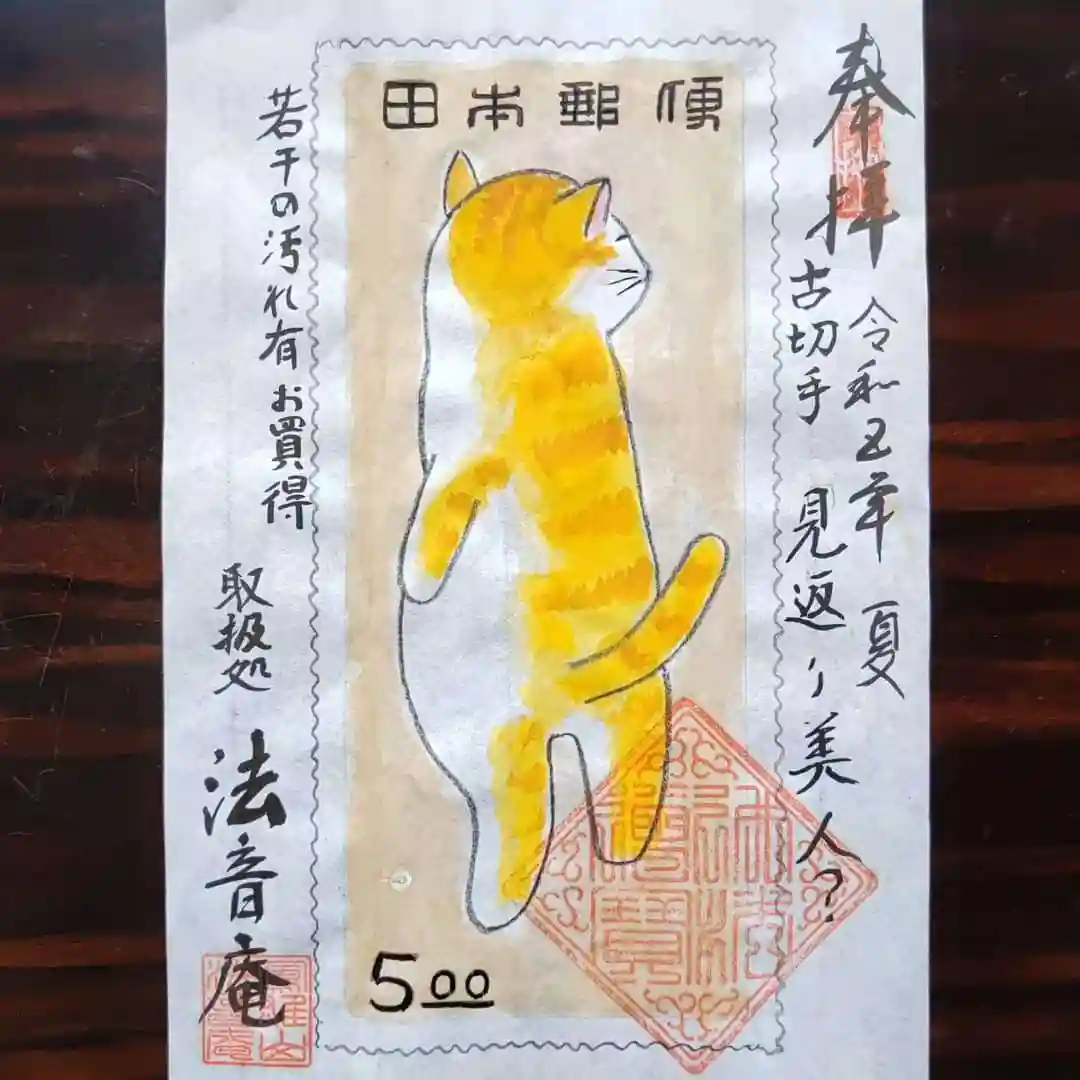 奉拝
令和五年 夏
古切手 見返り美人?
田本郵便
500
若干の汚れ有 お買得
取扱処 法音庵